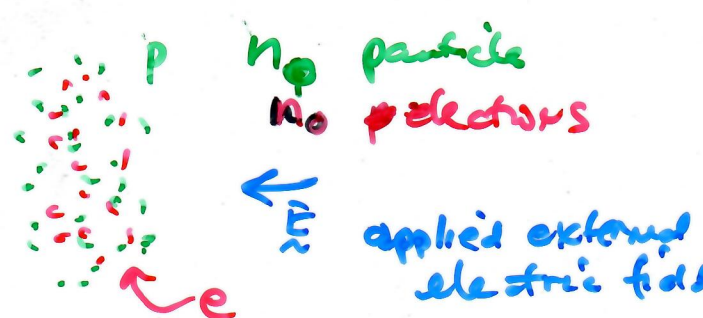 p n₀ particle
n₀ electrons
E
applied external
electric field
e